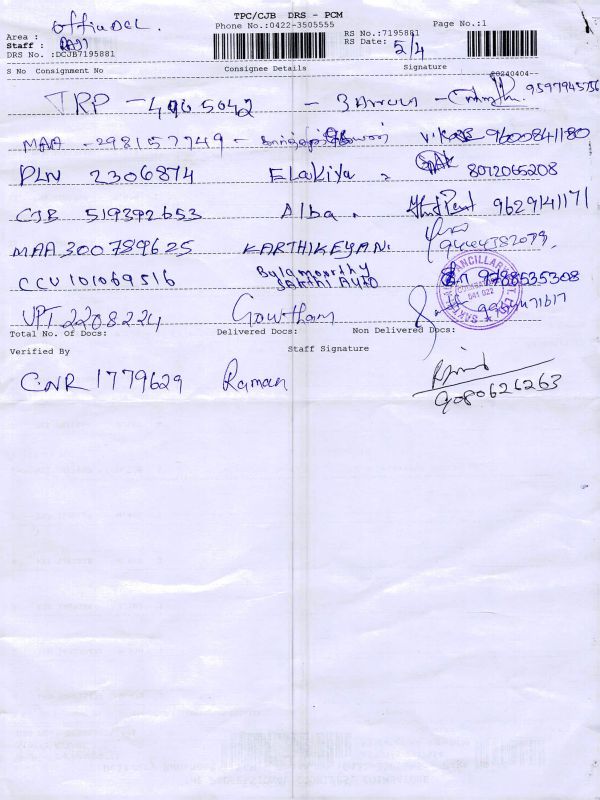 TPC/CJB DRS - PCM
Office Del.
Phone No.:0422-3505555
Page No.:1
Area :
Staff : RAJI
RS No.:7195881
RS Date: 5/4
DRS No. :DCJB7195881
S No Consignment No Consignee Details Signature
20240404--
TRP - 4965042 - 9597945756
MAA - 298157749 - V. 9600841180
PLN 2306874 Elakiya " 8072065208
CJB 519392653 Alba " 9629141171
MAA 300789625 KARTHIKEYAN. 9444382079
CCU 101069516 Balamoorthy SAKTHI AUTO 9788535308
VPT 2208224 Gowtham
Total No. Of Docs: Delivered Docs: Non Delivered Docs:
Verified By Staff Signature
CNR 1779629 Raman
9080626263